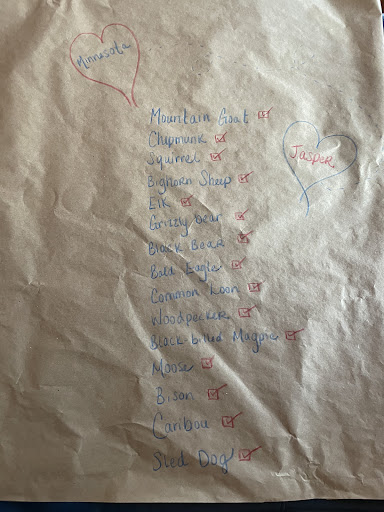 Minnusota
Mountain Goat
Chipmunk
Squirrel
Jasper
Bighorn Sheep
Elk
Grizzly bear
Black Bear
Bald Eagle
Common Loon
Woodpecker
Black-billed Magpie
Moose
Bison
Caribou
Sled Dog